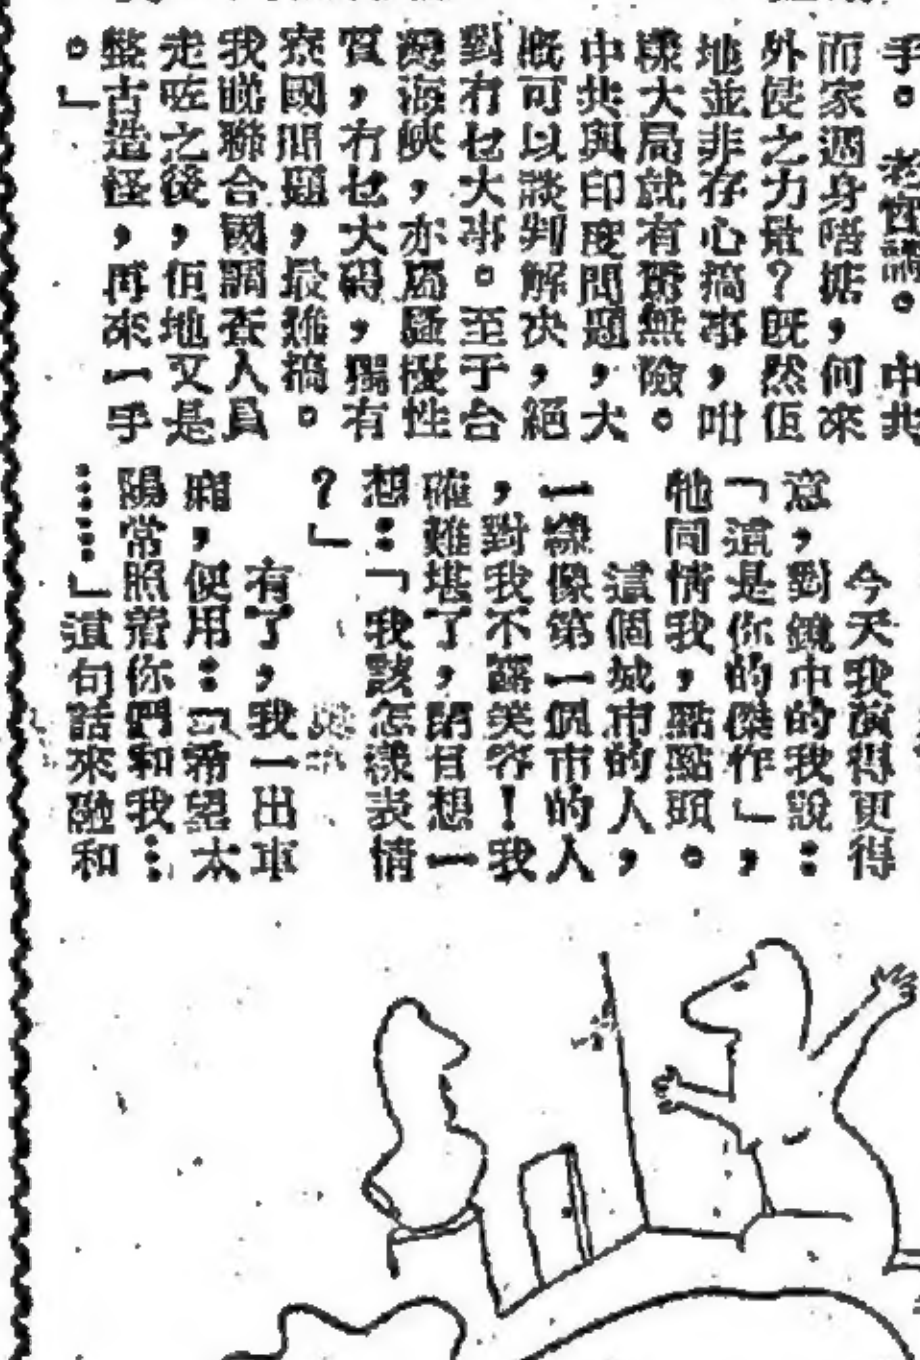 手。老實講。中共
而家週身唔掂,何來
外侵之力量?既然佢
地並非存心搞事,咁
樣大局就有驚無險。
中共與印度問題,大
槪可以談判解决,絕
對冇乜大事。至于台
灣海峽,亦屬騷擾性
質,冇乜大碍,獨有
寮國問題,最難搞。
我睇聯合國調查人員
走咗之後,佢地又是
整古造怪,再來一手
。」
今天我演得更得
意,對鏡中的我說:
「這是你的傑作」,
他同情我,點點頭。
這個城市的人,
一樣像第一個市的人
,對我不露笑容!我
確難堪了,閉目想一
想:「我該怎樣表情
?」
有了,我一出車
廂,便用:「希望太
陽常照着你們和我…
……」這句話來融和